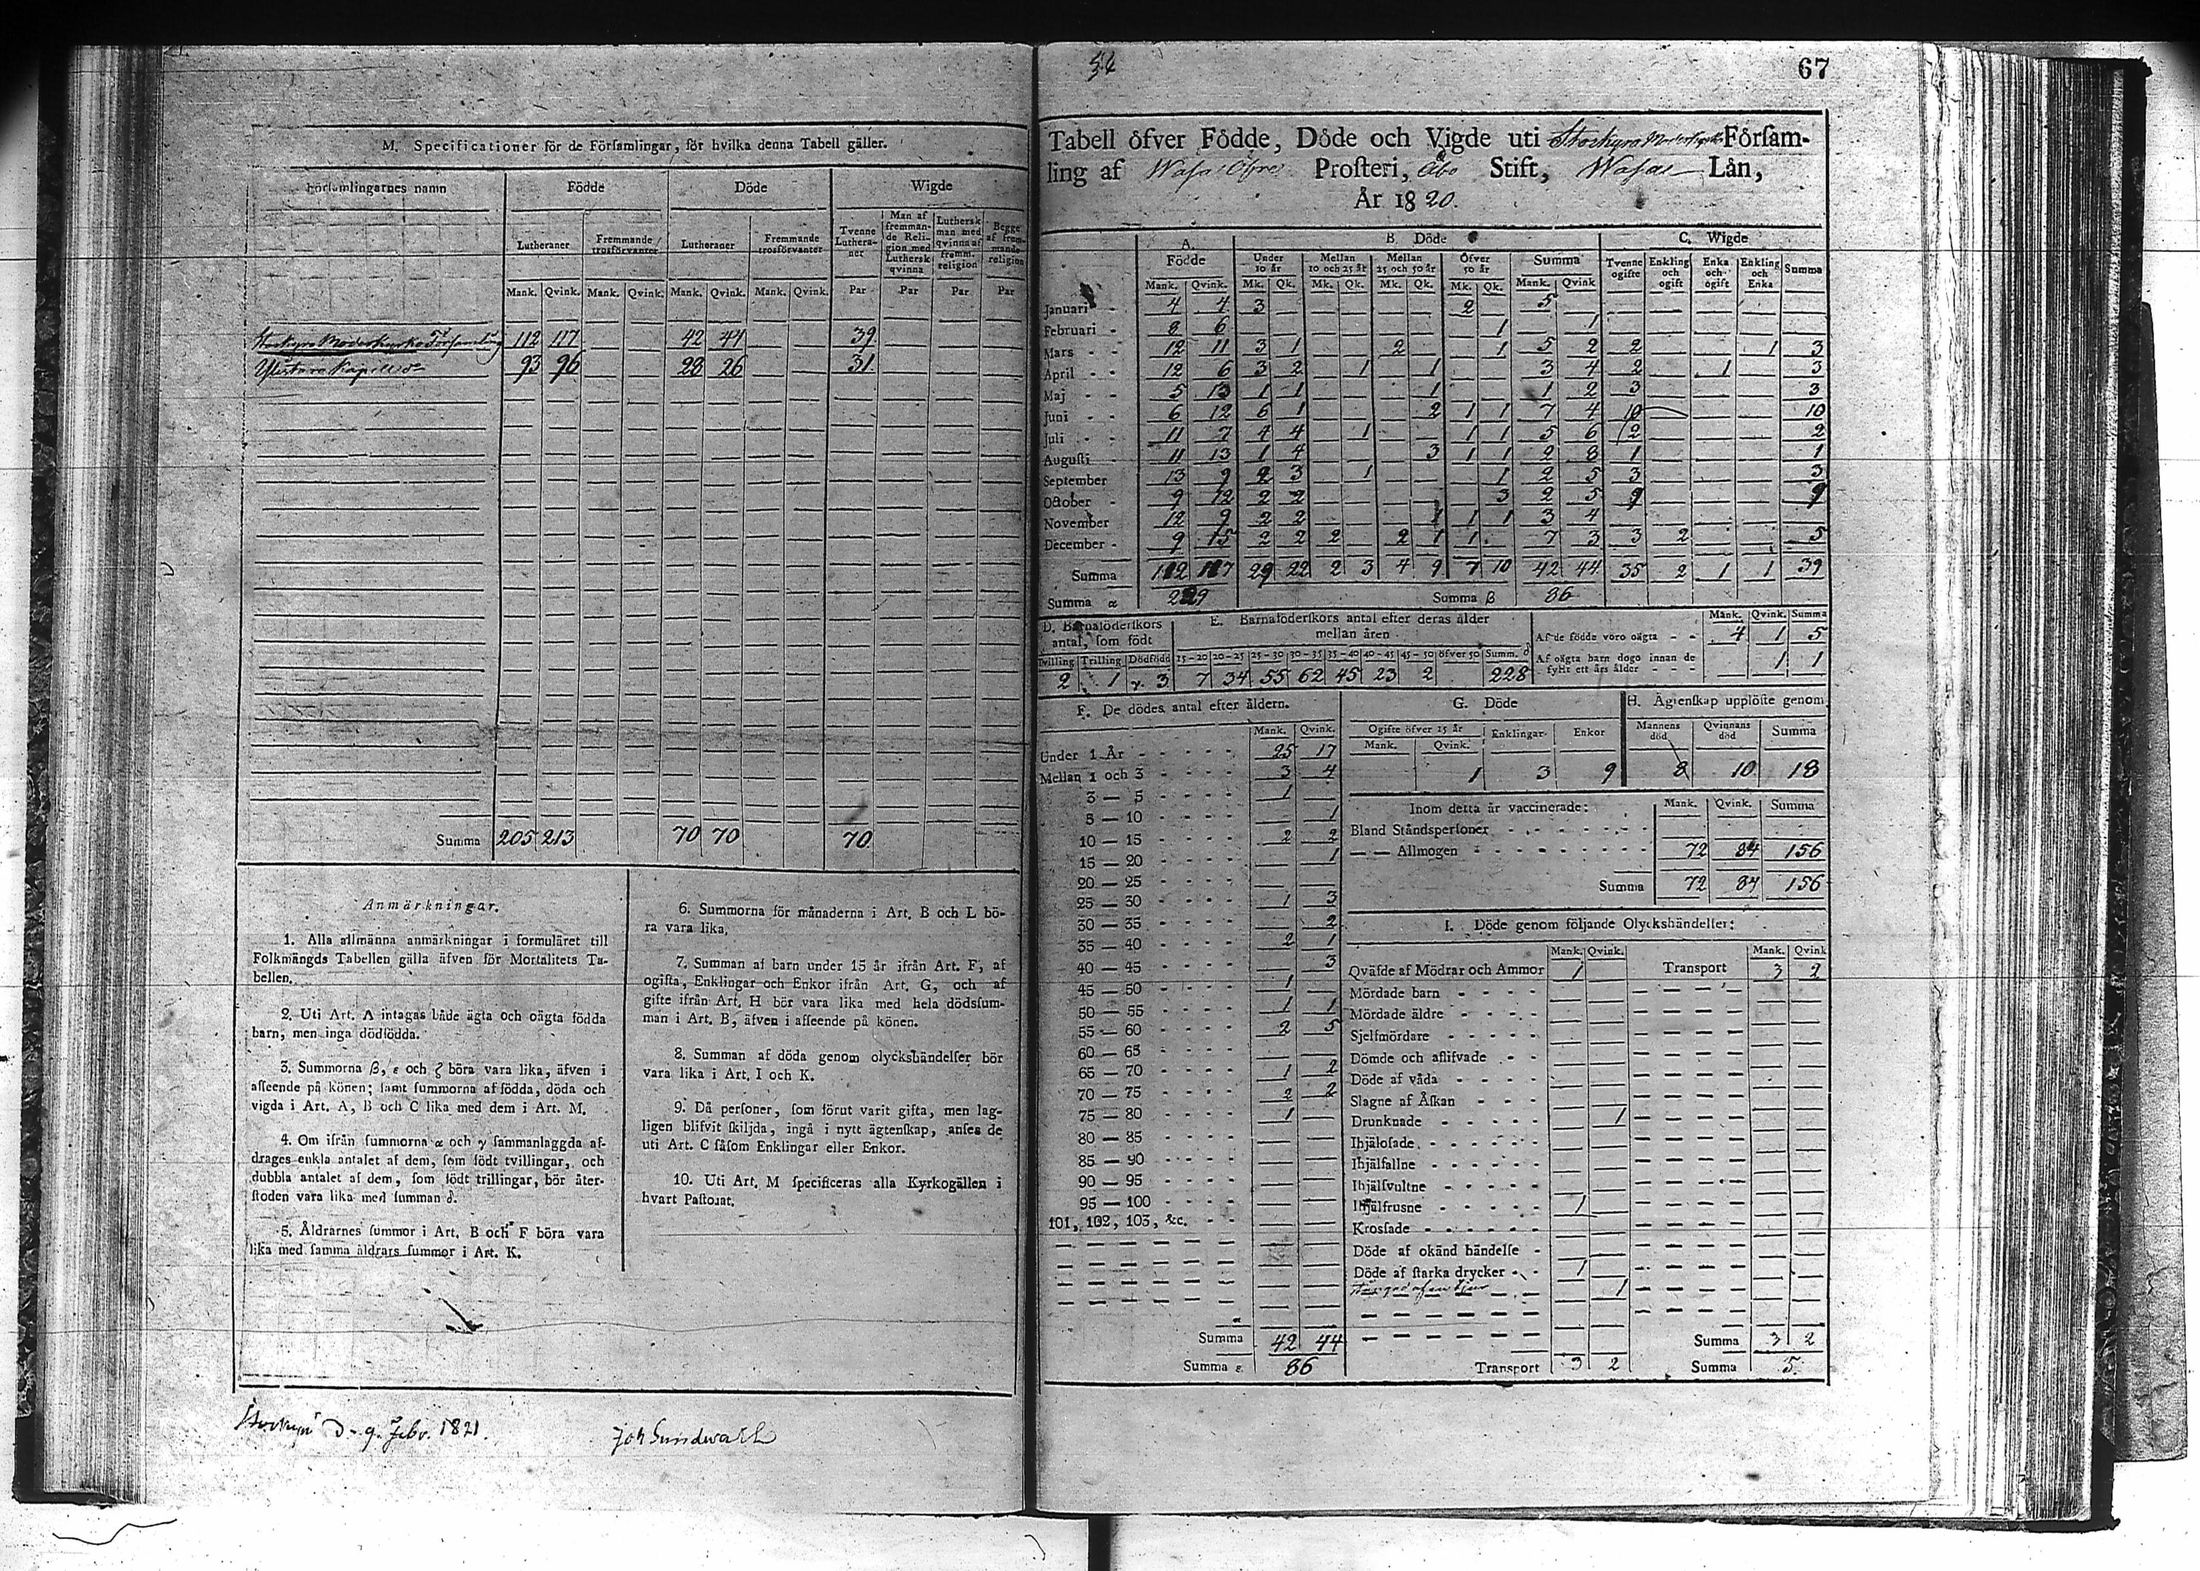 M. Specificationer för de Församlingar, för hvilka denna Tabell gäller.
Församlingarnes namn Födde Döde Wigde
Lutheraner Fremmande trosförvanter Lutheraner Fremmande trosförvanter Tvenne Lutheraner Man af fremmande Religion med Luthersk qvinna Luthersk man med qvinna af fremm. religion Begge af fremmande religion
Mank. Qvink. Mank. Qvink. Mank. Qvink. Mank. Qvink. Par Par Par Par
Storkyro Moderkyrko Församling 112 117 42 44 39
Kapell 93 96 28 26 31
Summa 205 213 70 70 70
Anmärkningar.
1. Alla allmänna anmärkningar i formuläret till
Folkmängds Tabellen gälla äfven för Mortalitets Ta-
bellen.
2. Uti Art. A intagas både ägta och oägta födda
barn, men inga dödfödda.
3. Summorna β, ε och ζ böra vara lika, äfven i
afseende på könen; samt summorna af födda, döda och
vigda i Art. A, B och C lika med dem i Art. M.
4. Om ifrån summorna α och γ sammanlaggda af-
drages enkla antalet af dem, som födt tvillingar, och
dubbla antalet af dem, som födt trillingar, bör åter-
stoden vara lika med summan δ.
5. Åldrarnes summor i Art. B och F böra vara
lika med samma åldrars summor i Art. K.
6. Summorna för månaderna i Art. B och L bö-
ra vara lika.
7. Summan af barn under 15 år ifrån Art. F, af
ogifta, Enklingar och Enkor ifrån Art. G, och af
gifte ifrån Art. H bör vara lika med hela dödssum-
man i Art. B, äfven i afseende på könen.
8. Summan af döda genom olyckshändelser bör
vara lika i Art. I och K.
9. Då personer, som förut varit gifta, men lag-
ligen blifvit skiljda, ingå i nytt ägtenskap, anses de
uti Art. C såsom Enklingar eller Enkor.
10. Uti Art. M specificeras alla Kyrkogällen i
hvart Pastorat.
Storkyro d. 9 Febr. 1821.
Joh Sundwall
67
Tabell öfver Födde, Döde och Vigde uti Storkyro Moderkyrko Försam-
ling af Wasa Öfre Prosteri, Åbo Stift, Wasa Län,
År 1820.
A. Födde B. Döde C. Wigde
Under 10 år Mellan 10 och 25 år Mellan 25 och 50 år Öfver 50 år Summa Tvenne ogifte Enkling och ogift Enka och ogift Enkling och Enka Summa
Mank. Qvink. Mk. Qk. Mk. Qk. Mk. Qk. Mk. Qk. Mank. Qvink
Januari 4 4 3 2 5
Februari 8 6 1 1
Mars 12 11 3 1 2 1 5 2 2 1 3
April 12 6 3 2 1 1 3 4 2 1 3
Maj 5 13 1 1 1 1 2 3 3
Juni 6 12 6 1 2 1 1 7 4 10 10
Juli 11 7 4 4 1 1 1 5 6 2 2
Augusti 11 13 1 4 3 1 1 2 8 1 1
September 13 9 2 3 1 1 2 5 3 3
October 9 12 2 2 3 2 5 9 9
November 12 9 2 2 1 1 1 3 4
December 9 15 2 2 2 2 1 1 7 3 3 2 5
Summa 112 117 29 22 2 3 4 9 7 10 42 44 35 2 1 1 39
Summa α 229 Summa β 86
D. Barnaföderskors antal, som födt
Tvilling Trilling Dödfödd
2 1 γ. 3
E. Barnaföderskors antal efter deras ålder mellan åren
15-20 20-25 25-30 30-35 35-40 40-45 45-50 öfver 50 Summ. δ
7 34 55 62 45 23 2 228
Mank. Qvink. Summa
Af de födde voro oägta 4 1 5
Af oägta barn dogo innan de fyllt ett års ålder 1 1
F. De dödes antal efter åldern.
Mank. Qvink.
Under 1 År 25 17
Mellan 1 och 3 3 4
3 — 5 1
5 — 10 1
10 — 15 2 2
15 — 20 1
20 — 25
25 — 30 1 3
30 — 35 2
35 — 40 2 1
40 — 45 3
45 — 50 1
50 — 55 1 1
55 — 60 2 5
60 — 65
65 — 70 1 2
70 — 75 2 2
75 — 80 1
80 — 85
85 — 90
90 — 95
95 — 100
101, 102, 103, &c.
Summa 42 44
Summa ε 86
G. Döde
Ogifte öfver 15 år Enklingar Enkor
Mank. Qvink.
1 3 9
H. Ägtenskap upplöste genom
Mannens död Qvinnans död Summa
8 10 18
Inom detta år vaccinerade: Mank. Qvink. Summa
Bland Ståndspersoner
— — Allmogen 72 84 156
Summa 72 84 156
I. Döde genom följande Olyckshändelser:
Mank. Qvink. Mank. Qvink
Qväfde af Mödrar och Ammor 1 Transport 3 2
Mördade barn
Mördade äldre
Sjelfmördare
Dömde och aflifvade
Döde af våda
Slagne af Åskan
Drunknade 1
Ihjälosade
Ihjälfallne
Ihjälsvultne
Ihjälfrusne 1
Krossade
Döde af okänd händelse
Döde af starka drycker 1
Stångad af en tjur 1
Summa 3 2
Transport 3 2 Summa 5.